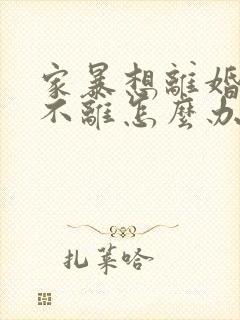 家暴想離婚
不離怎麼办
扎萊哈